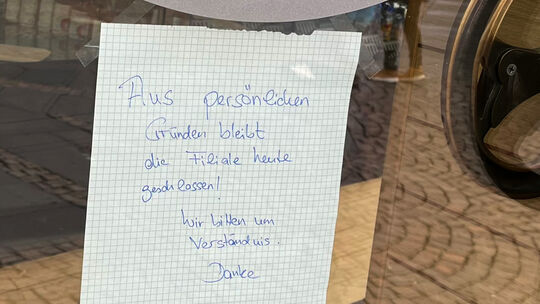 Aus persönlichen
Gründen bleibt
die Filiale heute
geschlossen!
Wir bitten um
Verständnis.
Danke